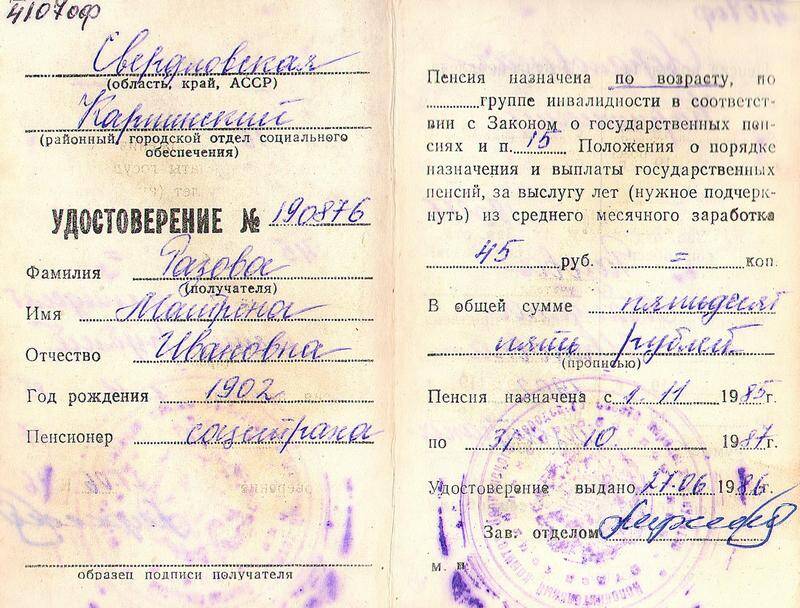 4107оф
Свердловская
(область, край, АССР)
(районный, городской отдел социального
обеспечения)
УДОСТОВЕРЕНИЕ № 190876
Фамилия
(получателя)
Имя Матрена
Отчество Ивановна
Год рождения 1902
Пенсионер соцстраха
образец подписи получателя
Пенсия назначена по возрасту, по
группе инвалидности в соответст-
вии с Законом о государственных пен-
сиях и п. 15 Положения о порядке
назначения и выплаты государственных
пенсий, за выслугу лет (нужное подчерк-
нуть) из среднего месячного заработка
45 руб. = коп.
В общей сумме пятьдесят
пять рублей
(прописью)
Пенсия назначена с 1. 11 1985г.
по 31 10 1987г.
Удостоверение выдано 27.06 1986г.
Зав. отделом
м. п.